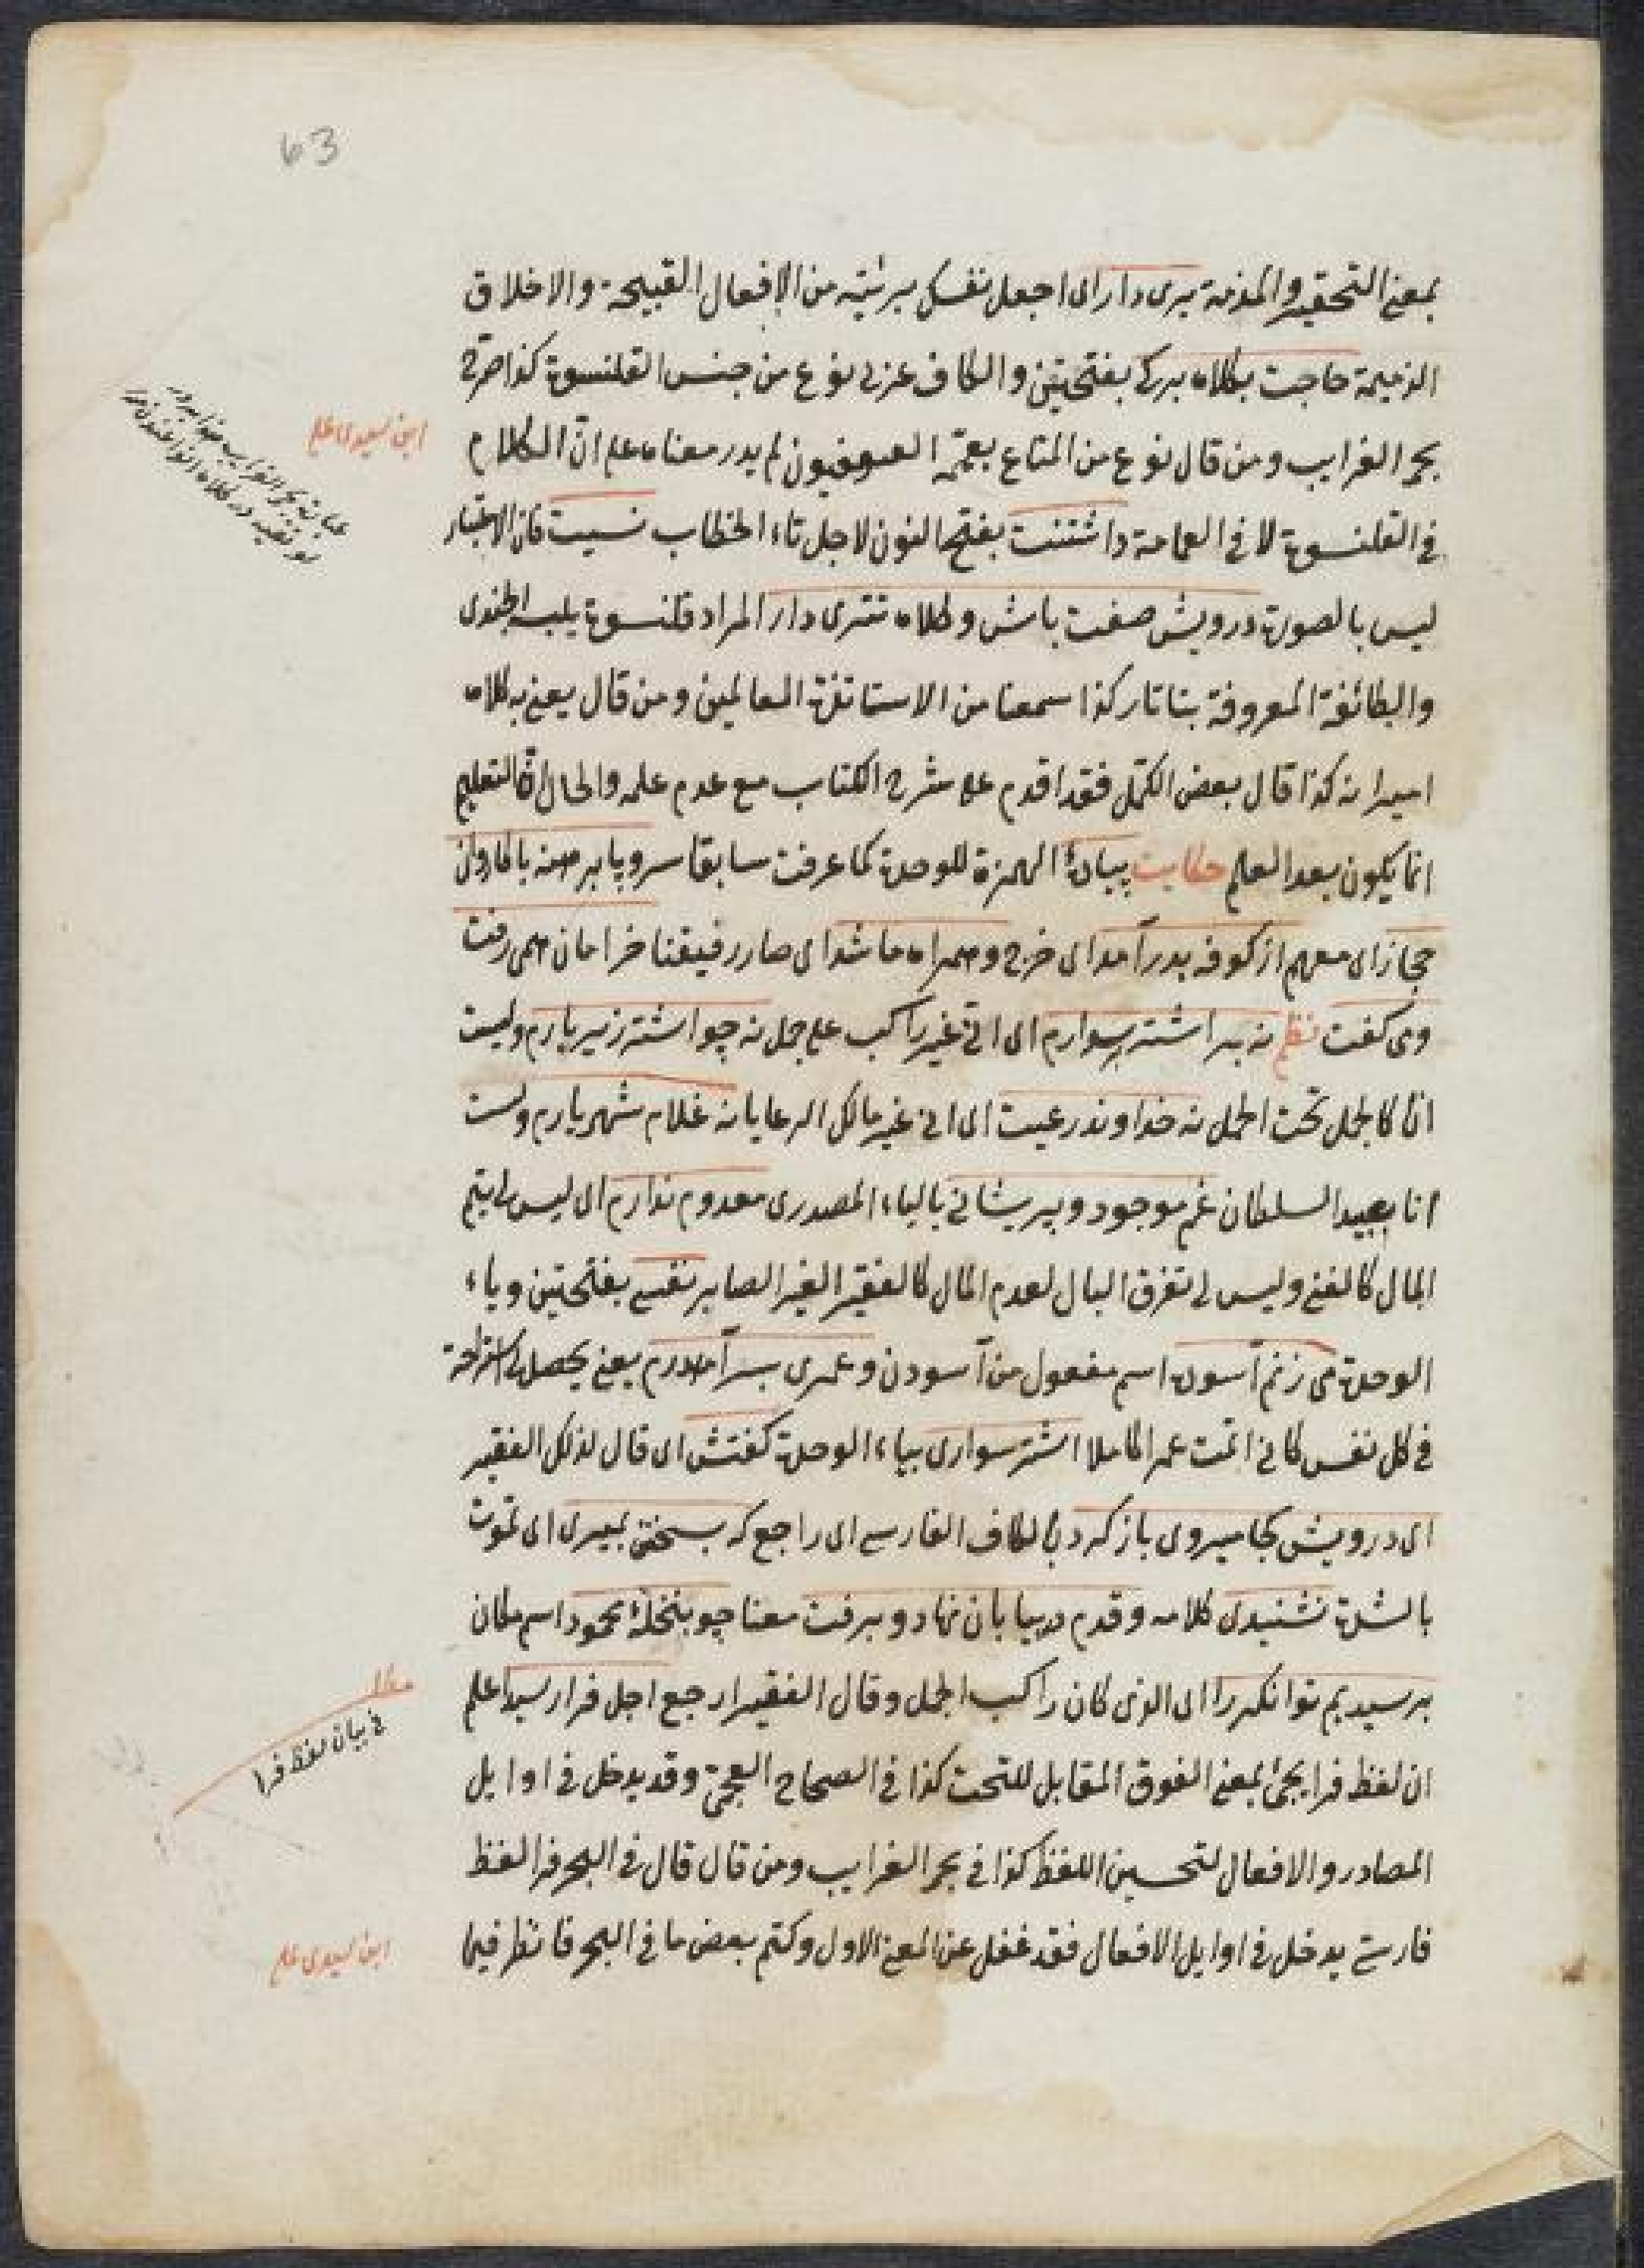 63
بمعنى التحقير والمذمة برى دار اى اجعل نفسك برئية من الافعال القبيحة والاخلاق
الذميمة حاجت بكلاه بركى بفتحتين والكاف عربى نوع من جنس القلنسوة كذا صرح
بحر الغرايب ومن قال نوع من المتاع يعممه الصوفيون لم يدر معناه على ان الكلام
فى القلنسوة لا فى العمامة داشتنت بفتح النون لاجل تاء الخطاب نسيت فان الاعتبار
ليس بالصورة درويش صفت باش وكلاه تترى دار المراد قلنسوة يلبسه الجندى
والطائفة المعروفة بتاتار كذا سمعنا من الاساتذة العالمين ومن قال يعنى به كلاه
اميرانه كذا قال بعض الكمل فقد اقدم على شرح الكتاب مع عدم علمه والحال ان التعليم
انما يكون بعد العلم حكايت پيادهٔ الهمزة للوحدة كما عرفت سابقا سروپا برهنه با كاروان
حجاز اى معهم از كوفه بدر آمد اى خرج وهمراه ما شد اى صار رفيقنا خرامان همى رفت
ومى كفت نظم نه بر اشتر سوارم اى انى غير راكب على جمل نه چو اشتر زير بارم وليست
انا كالجمل تحت الحمل نه خداوند رعيت اى انى غير مالك الرعايا نه غلام شهريارم ولست
انا بعبيد السلطان غم موجود وپريشانى بالياء المصدرى معدوم ندارم اى ليس لى يتم
المال كالغنى وليس لى تفرق البال لعدم المال كالفقير الغير الصابر نفسى بفتحتين وياء
الوحدة مى زنم آسوده اسم مفعول من آسودن وعمرى بسر آمدرم يعنى يحصل لى استراحة
فى كل نفس كانى اتممت عمرا كاملا اشتر سوارى بياء الوحدة كفتش اى قال لذلك الفقير
اى درويش كجا ميروى باز كرد بالكاف الفارسى اى راجع كه بسختى بميرى اى تموت
بالشدة نشنيدى كلامه وقدم در بيابان نهاد وبرفت معنا چو بنخلهٔ محمود اسم مكان
برسيديم توانكر را اى الذى كان راكب الجمل وقال الفقير ارجع اجل فرا رسيد اعلم
ان لفظ فرا يجئ بمعنى الفوق المقابل للتحت كذا فى الصحاح العجمى وقد يدخل فى اوايل
المصادر والافعال لتحسين اللفظ كذا فى بحر الغرايب ومن قال قال فى البحر فرا لفظ
فارسى يدخل فى اوايل الافعال فقد غفل عن المعنى الاول وكتم بعض ما فى البحر فانظر فيها
ابن سيدى على
عبارت بحر الغرايب
مطلب
فى بيان لفظ فرا
ابن سيدى على